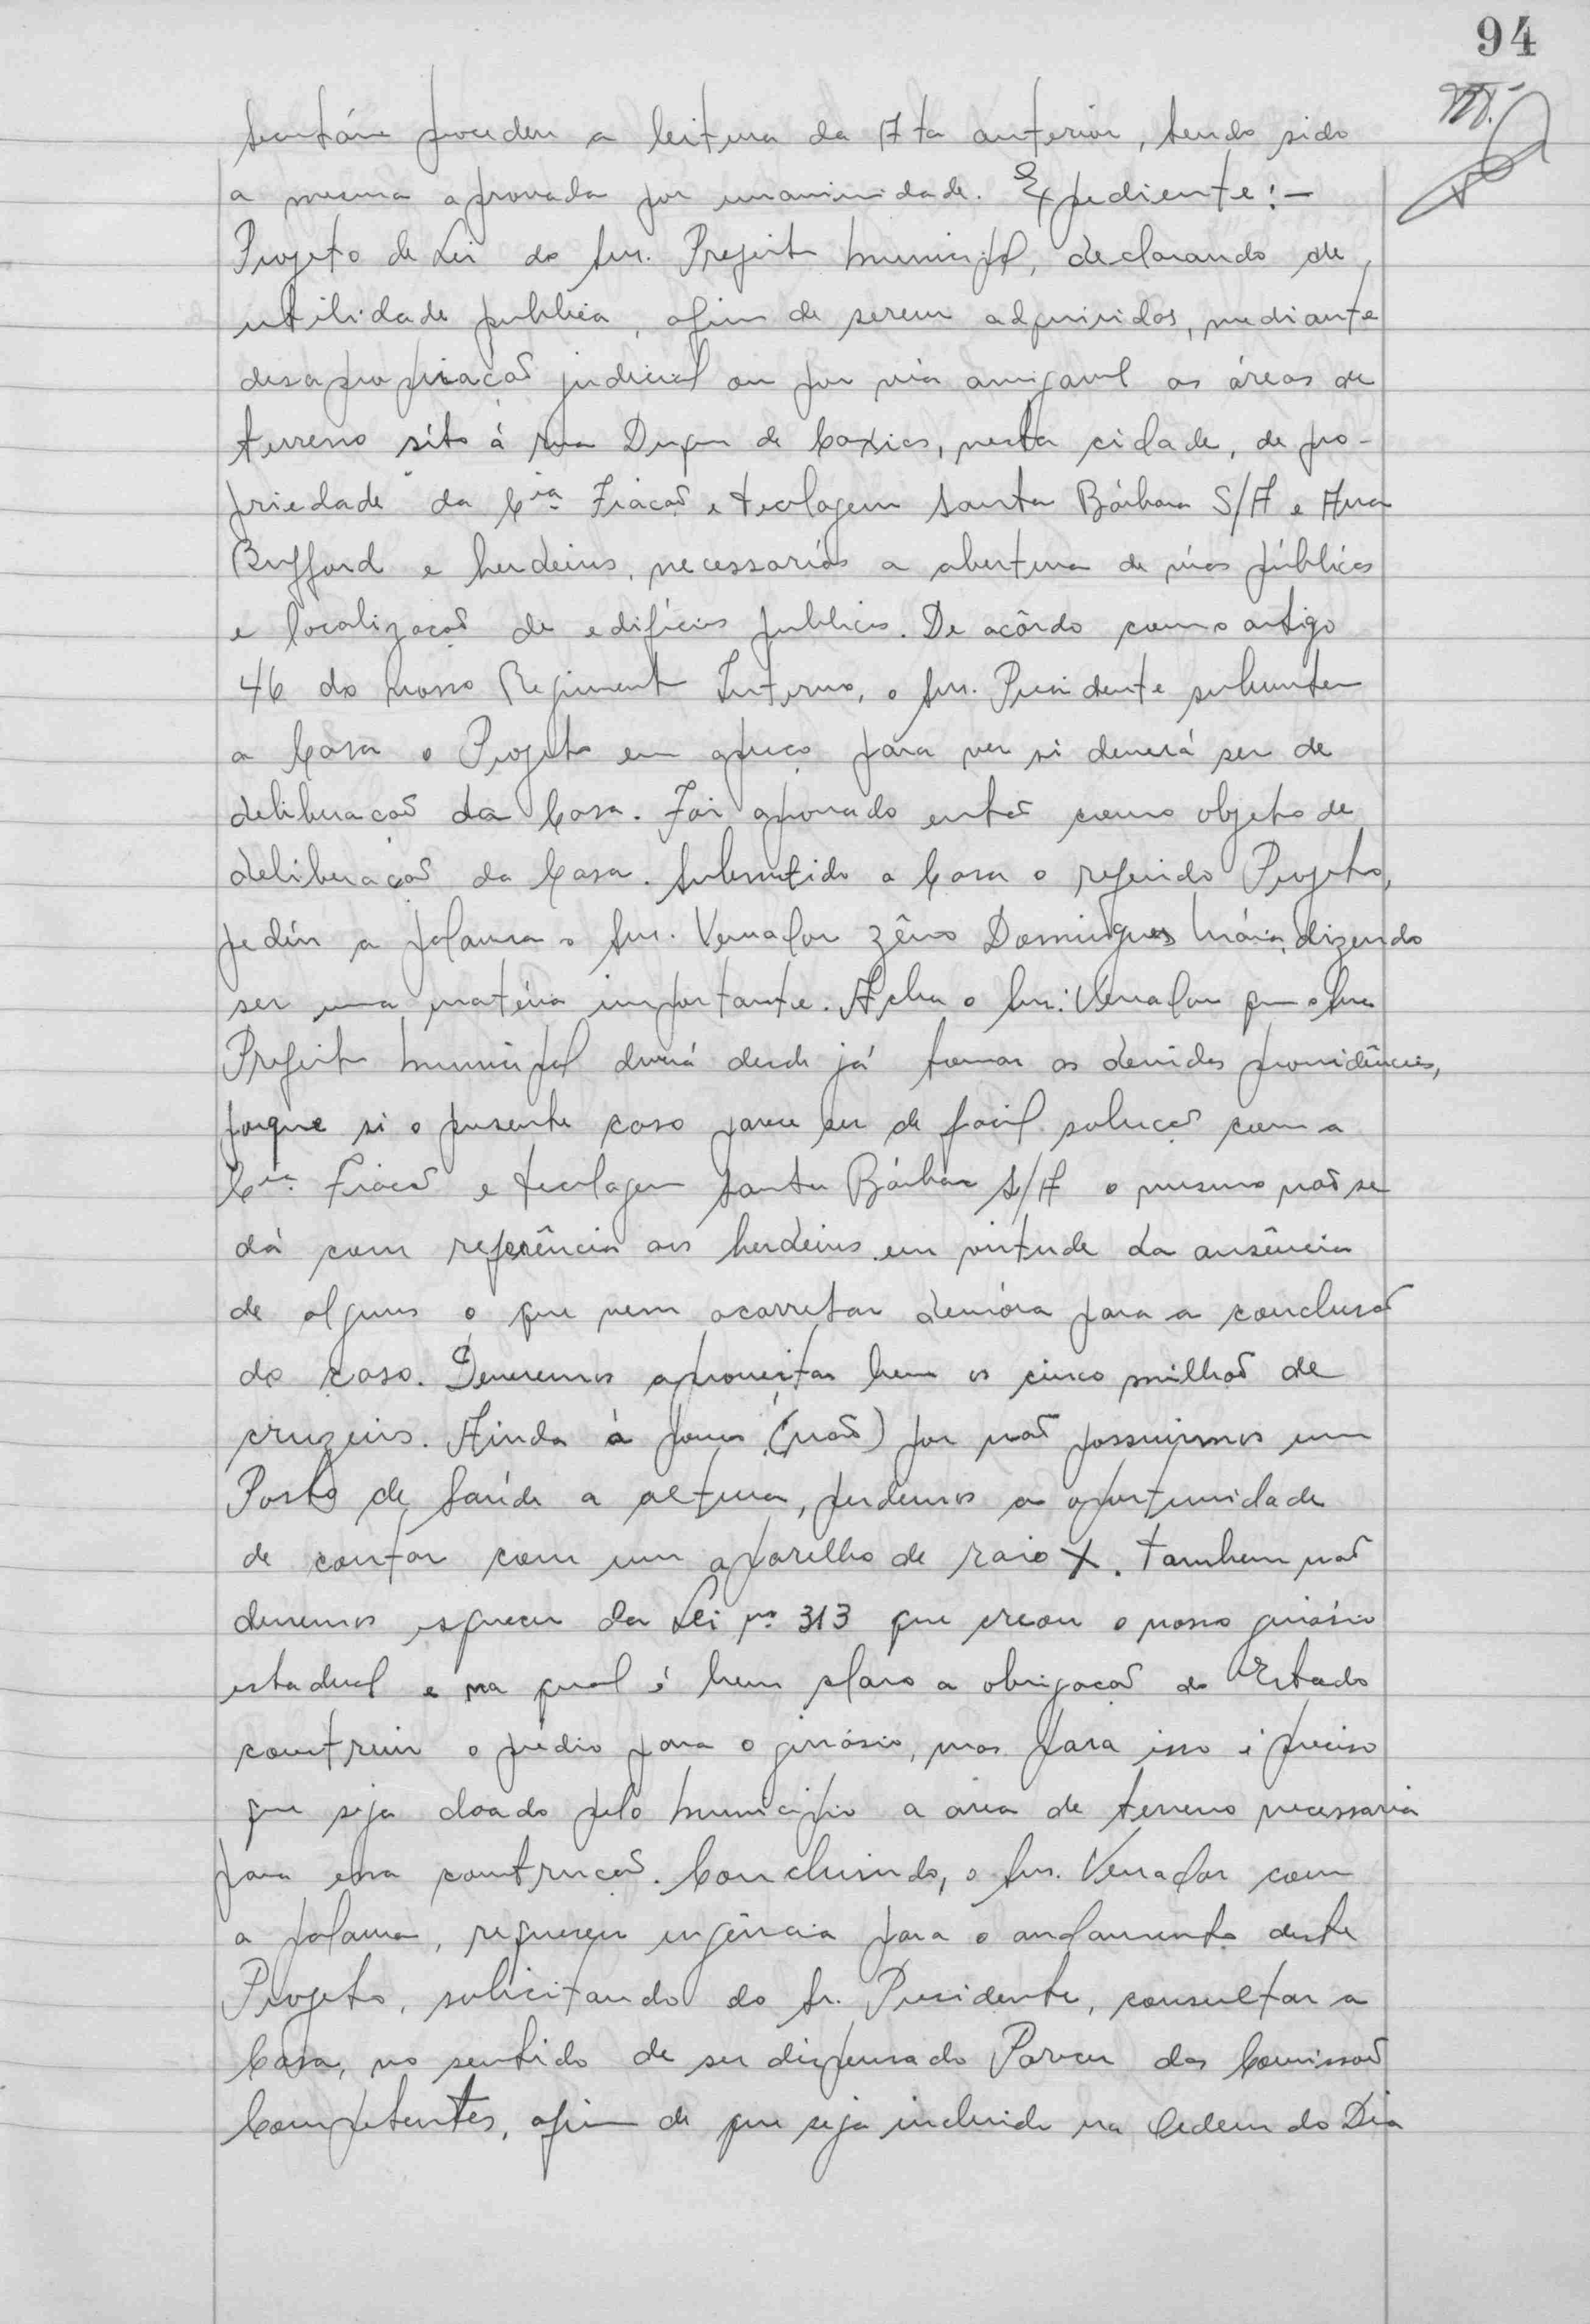 94
Secretário procedeu a leitura da Ata anterior, tendo sido
a mesma aprovada por unanimidade. Expediente:-
Projeto de Lei do Snr. Prefeito Municipal, declarando de
utilidade publica, afim de serem adquiridos, mediante
desapropriação judicial ou por via amigavel as áreas de
terreno sito á rua Duque de Caxias, nesta cidade, de pro-
priedade da Cia. Fiação e Tecelagem Santa Bárbara S/A e Ana
Bufford e herdeiros, necessariás a abertura de vias públicas
e localização de edifícios publicos. De acôrdo com o artigo
46 do nosso Regimento Interno, o Snr. Presidente submeteu
a Casa o Projeto em apreço para ver si deverá ser de
deliberação da Casa. Foi aprovado então como objeto de
deliberação da Casa. Submetido a Casa o referido Projeto,
pediu a palavra o Snr. Vereador Zêno Domingues Maia, dizendo
ser uma matéria importante. Acha o Snr. Vereador que o Snr.
Prefeito Municipal deverá desde já tomar as devidas providências,
porque si o presente caso parece ser de facil solução com a
Cia. Fiação e Tecelagem Santa Bárbara S/A o mesmo não se
dá com referência aos herdeiros em virtude da ausência
de alguns o que vem acarretar demóra para a conclusão
do caso. Devemos aproveitar bem os cinco milhões de
cruzeiros. Ainda á pouco (não) por não possuirmos um
Posto de Saúde a altura, perdemos a oportunidade
de contar com um aparelho de raio X. Tambem não
devemos esquecer da Lei nº 313 que creou o nosso ginásio
estadual e na qual é bem claro a obrigação do Estado
construir o prédio para o ginásio, mas para isso é preciso
que seja doado pelo municipio a area de terreno necessaria
para essa construção. Concluindo, o Snr. Vereador com
a palavra, requereu urgência para o andamento deste
Projeto, solicitando do Sr. Presidente, consultar a
Casa, no sentido de ser dispensado Parecer das Comissões
Competentes, afim de que seja incluido na Ordem do Dia